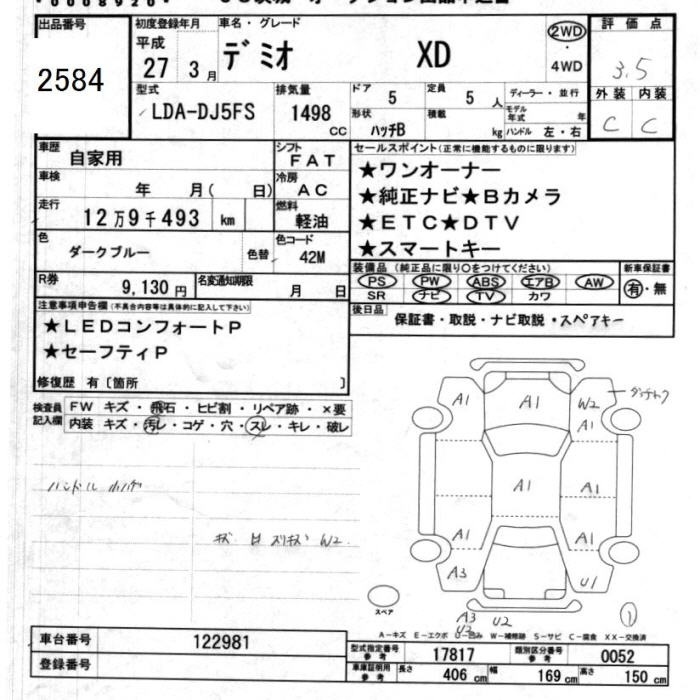 出品番号 初度登録年月 車名・グレード 2WD 評価点
2584 平成 27 3月 デミオ XD 4WD 3.5
型式 LDA-DJ5FS 排気量 1498 CC ドア 5 定員 5 人 ディーラー・並行 外装 内装
形状 ハッチB 積載 kg モデル年式 年 ハンドル 左・右 C C
車歴 自家用 シフト FAT セールスポイント(正常に機能するものに限ります)
車検 年 月( 日) 冷房 AC ★ワンオーナー
★純正ナビ★Bカメラ
走行 12万9千493 km 燃料 軽油 ★ETC★DTV
色 ダークブルー 色替 色コード 42M ★スマートキー
R券 9,130円 名変通知期限 月 日 装備品(純正品に限り○をつけてください) 新車保証書
PS PW ABS エアB AW 有・無
SR ナビ TV カワ
注意事項申告欄(不具合内容等は具体的に記入して下さい) 後日品 保証書・取説・ナビ取説・スペアキー
★LEDコンフォートP
★セーフティP
修復歴 有〔箇所 〕
検査員記入欄 FW キズ・飛石・ヒビ割・リペア跡・×要
内装 キズ・汚レ・コゲ・穴・スレ・キレ・破レ
A1 A1 W2 A1
A1 A1
A1 A1
A3 U1
スペア
A3 U2
U2
1
A-キズ E-エクボ U-凹み W-補修跡 S-サビ C-腐食 XX-交換済
車台番号 122981 型式指定番号 参考 17817 類別区分番号 参考 0052
登録番号 車庫証明用 参考 長さ 406 cm 幅 169 cm 高さ 150 cm